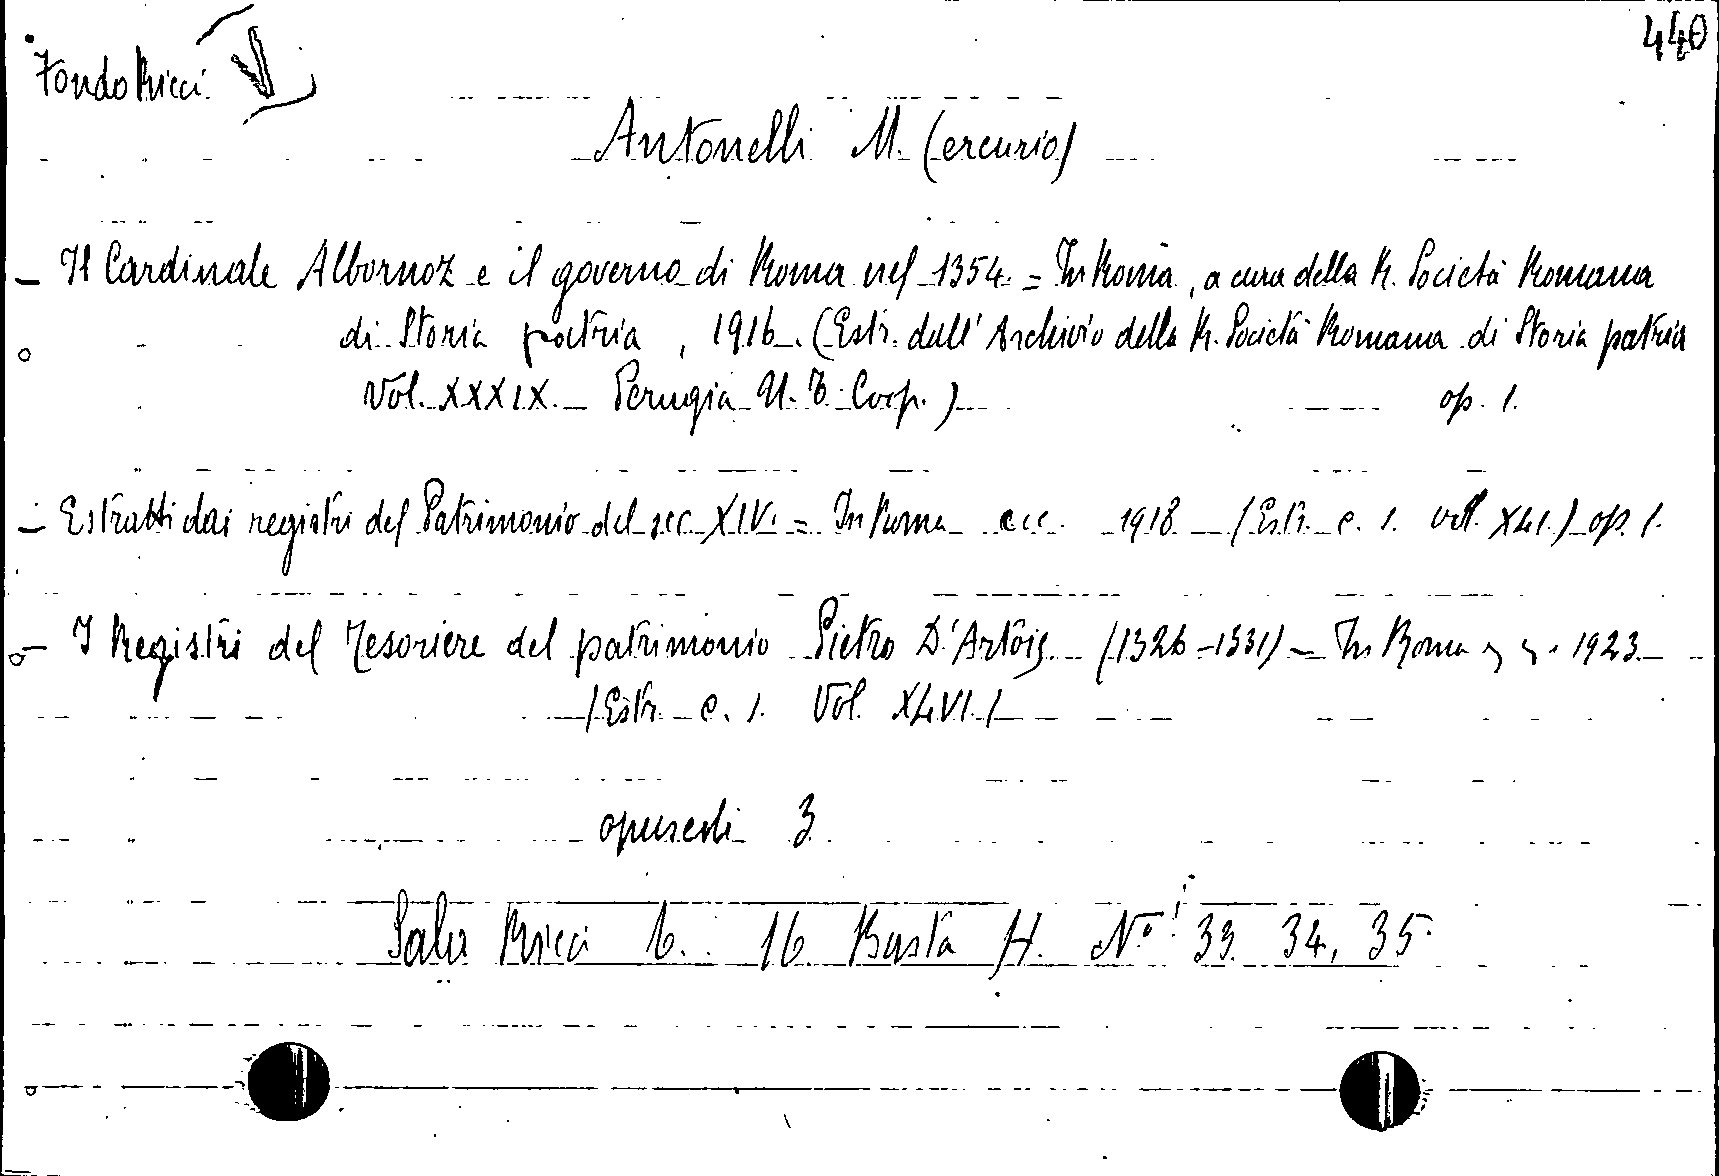 440
Fondo Ricci
Antonelli M. (ercurio)
- Il Cardinale Albornoz e il governo di Roma nel 1354. = In Roma, a cura della R. Società Romana
di Storia patria, 1916. (Estr. dall'Archivio della R. Società Romana di Storia patria
Vol. XXXIX. - Perugia U. T. Coop.) op. 1.
- Estratti dai registri del Patrimonio del sec. XIV. = In Roma ecc. 1918 (Estr. c. s. vol. XLI.) op. 1.
- I Registri del Tesoriere del patrimonio Pietro D'Artois (1326-1331) - In Roma 1923.
(Estr. c. s. Vol. XLVI.)
opuscoli 3
Sala Ricci 16. Busta H. Ni 33. 34, 35.